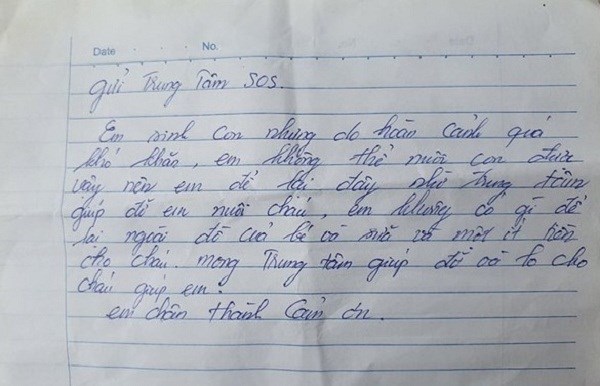 Date No.
gửi Trung Tâm SOS.
Em sinh con nhưng do hoàn cảnh quá
khó khăn, em không thể nuôi con được
vậy nên em để lại đây nhờ Trung tâm
giúp đỡ em nuôi cháu, em không có gì để
lại ngoài đồ của bé và sữa và một ít tiền
cho cháu. mong Trung tâm giúp đỡ và lo cho
cháu giúp em!
em chân thành cảm ơn.